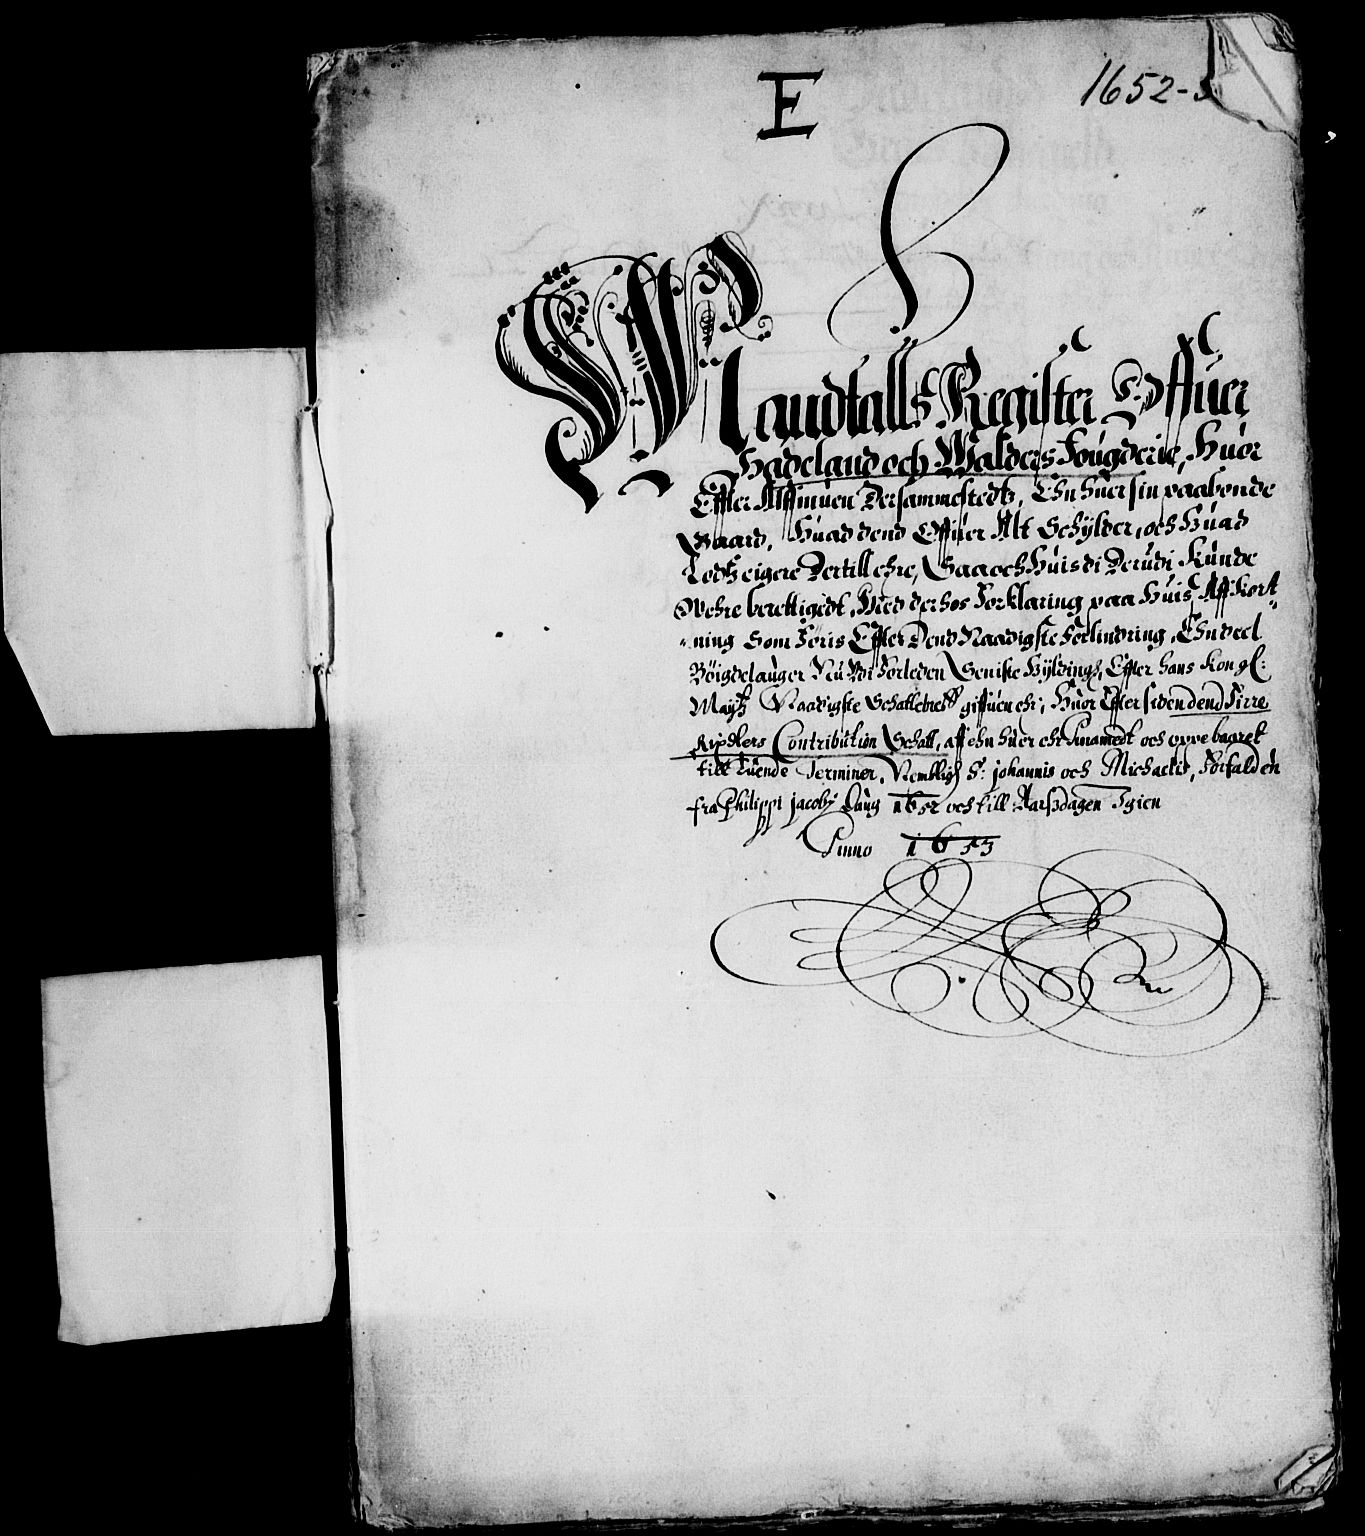 E
1652-5
Mandtalls Register Offuer
Hadeland och Walders Fougderie, Huor
Effter Allffmuen Dersammestedtz, Ehn huer sin paaboende
Gaard, Huad dend Offuer Alt Schÿlder, och Huad
Lodtz eigere Dertill ehre, Saa och Huis di Derudi Kunde
Wehre berettigedt, Med derhos Forklaring paa Huis Aff Kort
ning Som Foris Effter Dend Naadigste Forlindring, Ehn deel
Böigdelauger Nu Wdi Forleden Seniste Hÿlding, Effter hans Kongl:
Maytz Naadigste Schattebreff giffuen ehr, Huor Effter siden dend Firre
Rixdlers Contribution Schatt, aff ehn huer ehr Annamedt och oppebaaret
till Tuende Terminer, Nembligh S: johannis och Michaelis, Forfalden
fra Philippi jacobj Daug 1652 och till Aarsdagen Igien
Anno 1653